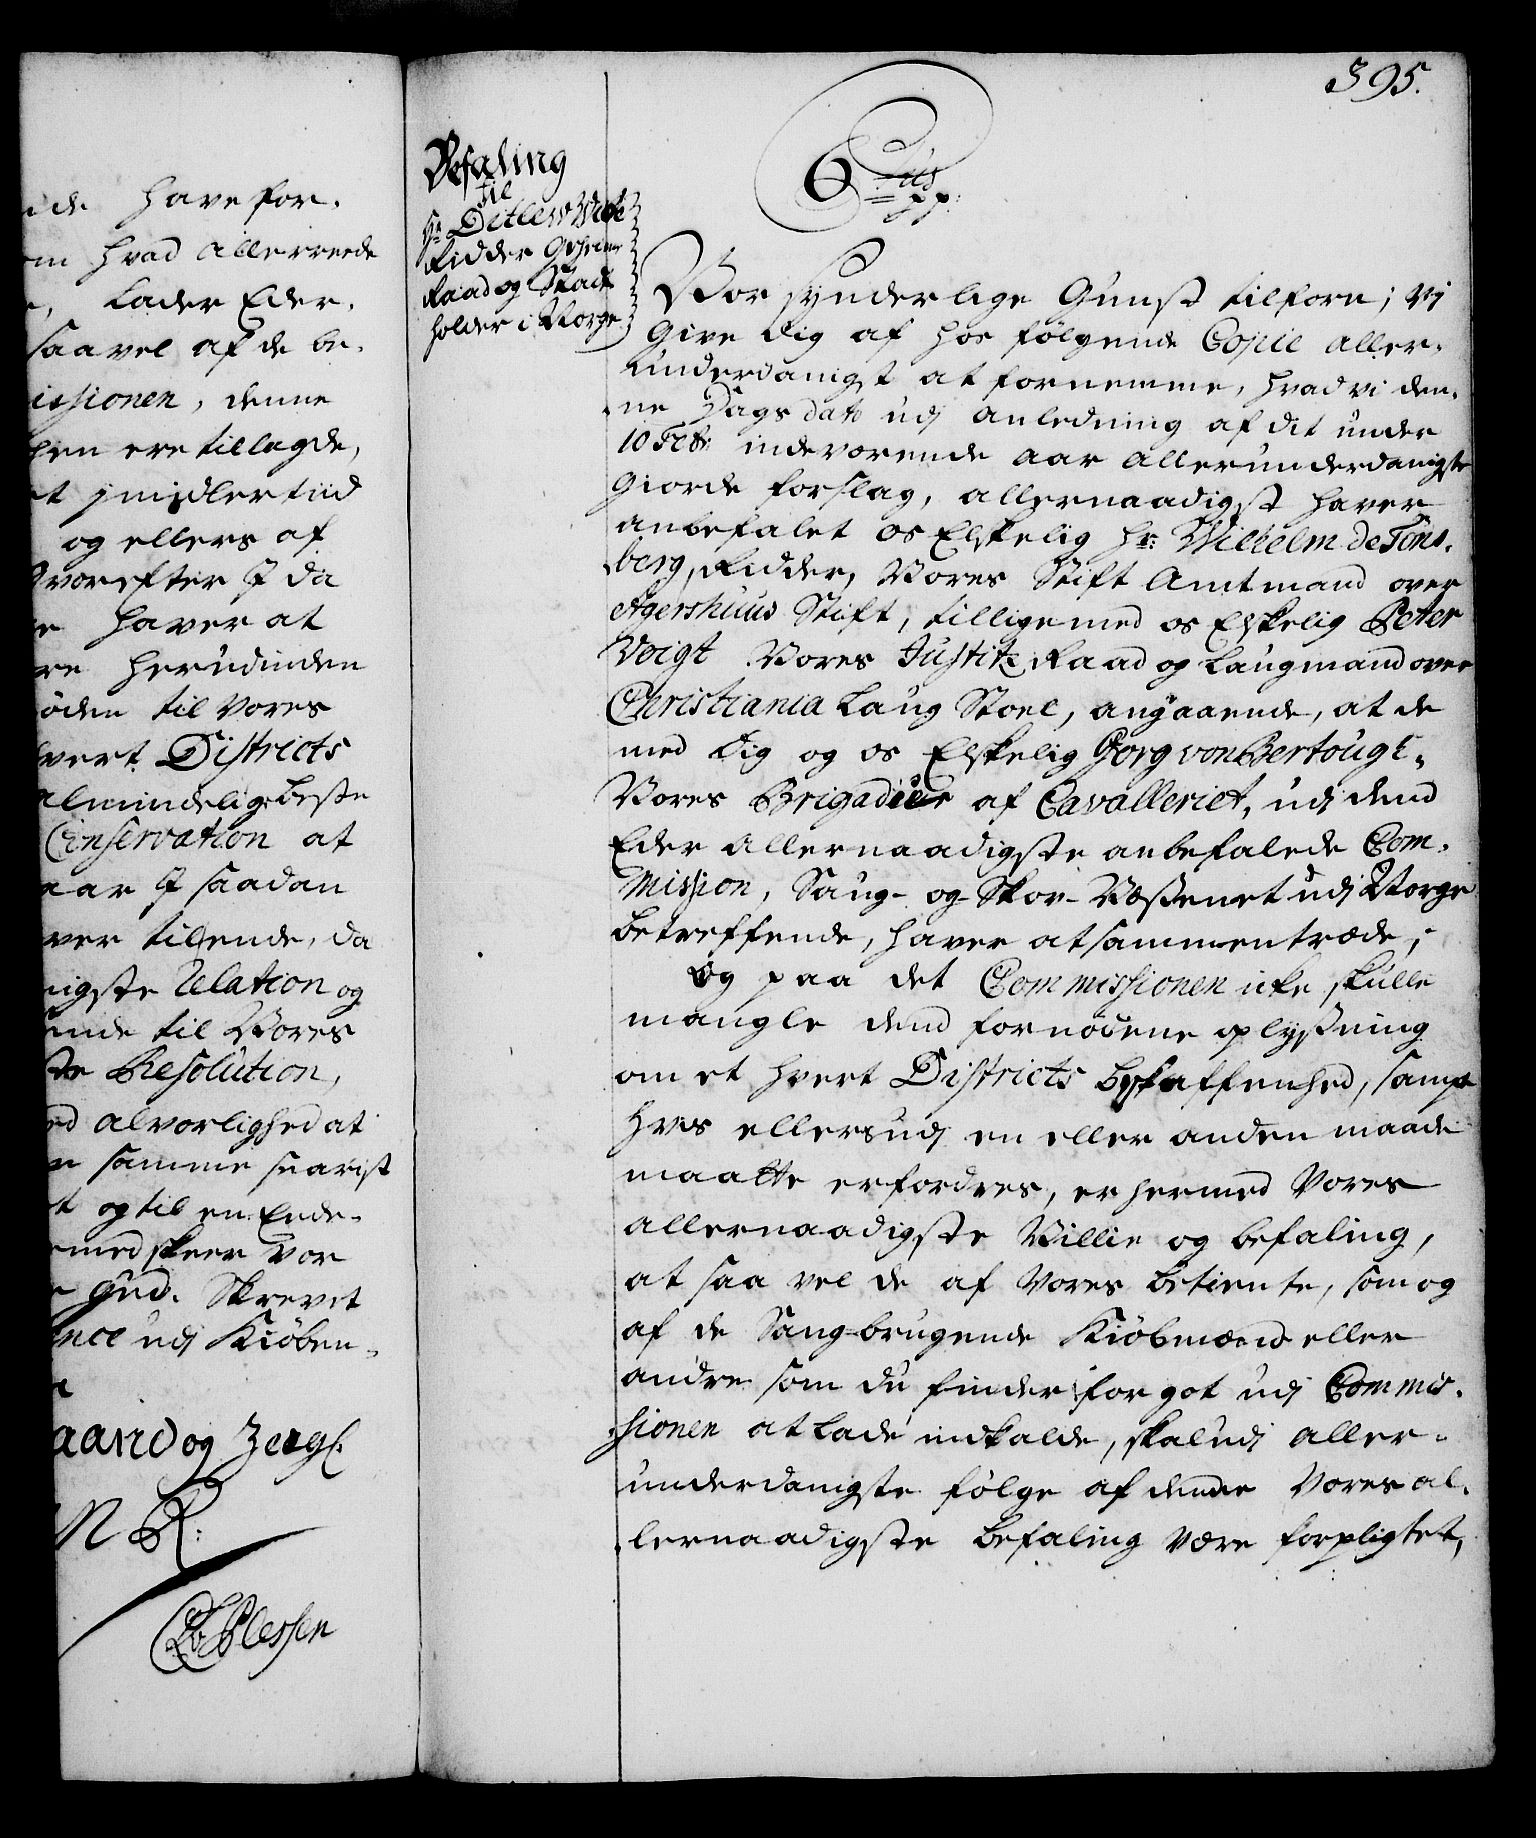 395.
ide have for.
om hvad allerreede
e, lader Eder,
saavel af de be-
issionen, denne
hen ere tillagde,
et imidlertiid
og ellers af
hvorefter I da
e haver at
re herudinden
öden til Vores
hvert Districts
almindelige beste
Conservation at
naar I saadan
ver tilende, da
nigste Relation og
ende til Vores
ste Resolution,
ed alvorlighed at
e samme snarist
t og til en Ende.
ermed skeer Vor
r Gud. Skrevet
ence udj Kiöben-
aard og Zeigl.
N R:
CvPlessen
Befaling
til
Hr. Ditlew Wibe
Ridder Geheime
Raad og Stadt
holder i Norge
6tus
pp:
Vor synderlige Gunst tilforn; Vi
Give dig af hos følgende Copie aller-
underdanigst at fornemme, hvad vi den-
ne Dags dato udj anledning af dit under
10 Febr: indeværende aar allerunderdanigste
Giorde forslag, allernaadigst haver
anbefalet os Elskelig Hr: Wilhelm de Töns-
berg, Ridder, Vores Stift Amtmand over
Agershuus Stift, tillige med os Elskelig Peter
Voigt Vores Justitz Raad og Laugmand over
Christiania Laug Stoel, angaaende, at de
med dig og os Elskelig Görg von Bertough,
Vores Brigadier af Cavalleriet, udj dend
Eder allernaadigste anbefalede Com-
mission, Saug- og Skov-Væssenet udj Norge
betreffende, haver at sammentræde;
Og paa det Commissionen icke skulle
mangle dend fornödene oplyssning
om et hvert Districts beskaffenhed, sampt
hvis ellers udj en eller anden maade
maatte erfordres, er hermed Vores
allernaadigste Villie og befaling,
at saa vel de af Vores betiente, som og
af de Saug-brugende Kiöbmænd eller
andre som du finder for got udj Commis-
sionen at lade indkalde, skal udj aller-
underdanigste følge af denne Vores al-
lernaadigste befaling være forpligtet,